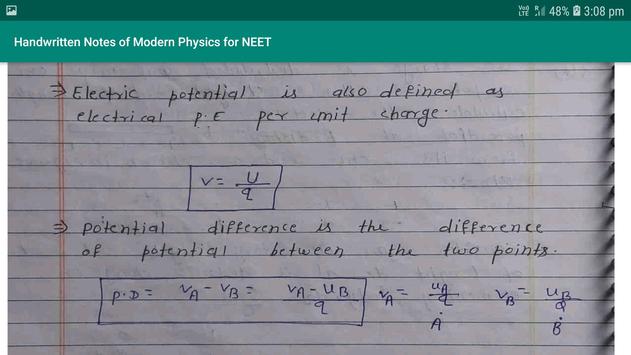 Vo) LTE R 48% 3:08 pm
Handwritten Notes of Modern Physics for NEET
⇒ Electric potential is also defined as
electrical P.E per unit charge.
V = U/q
⇒ Potential difference is the difference
of potential between the two points.
P.D = VA - VB = VA - UB/q VA = UA/q VB = UB/q
A B